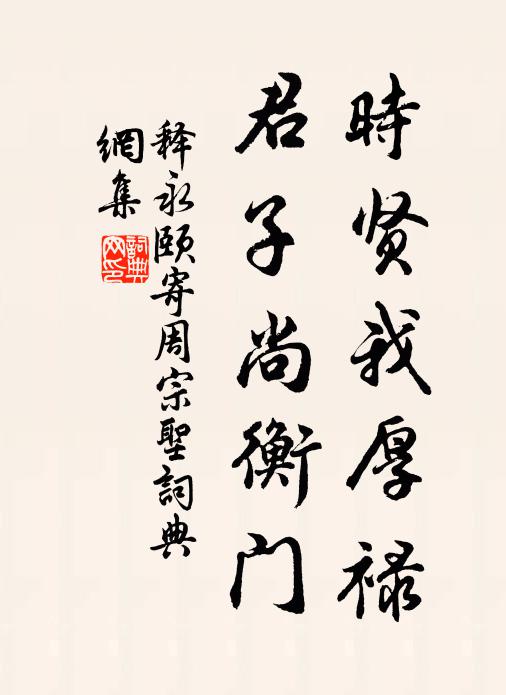 時贤我厚禄
君子尚衡门
释永颐寄周宗聖詞典
網集
詞典網印